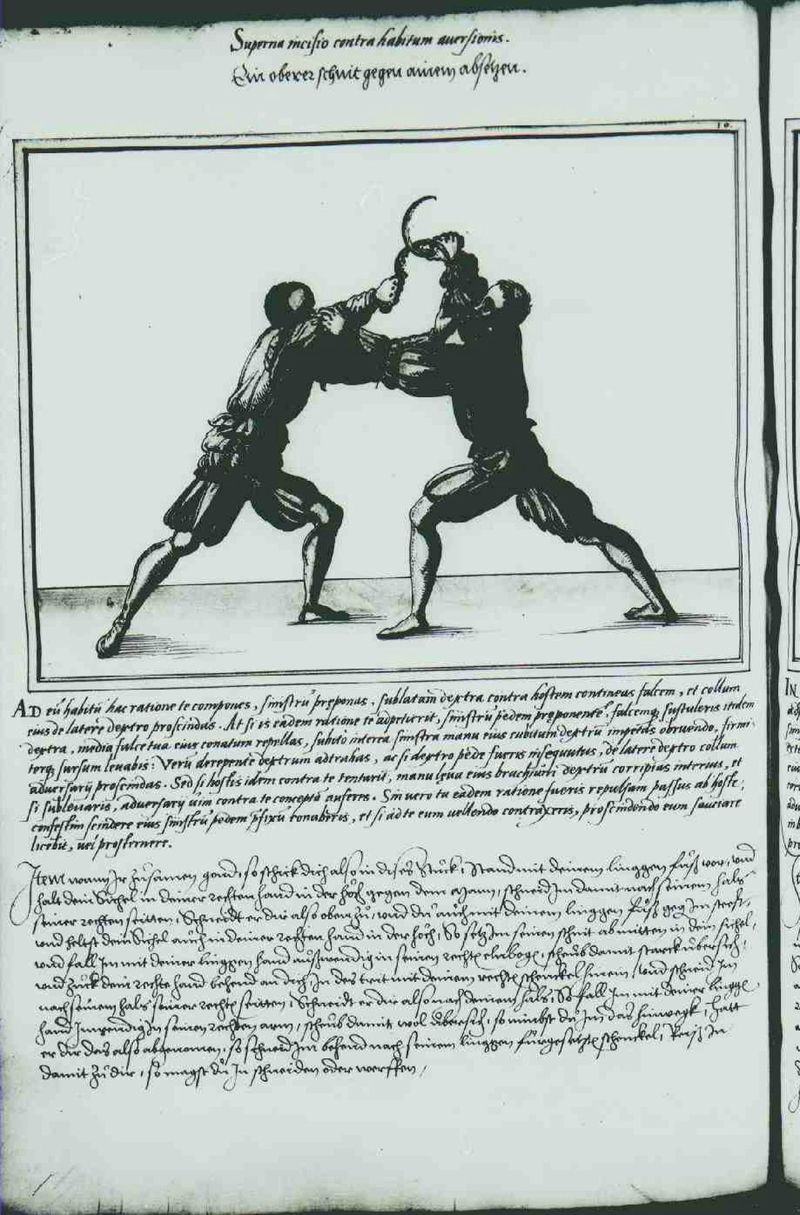 Superna incisio contra habitum auersionis.
Ein oberer schnit gegen ainem abseȝen.
10.
AD eū habitū hac ratione te compones, sinistrū preponas, sublatam dextra contra hostem contineas falcem, et collum
eius de latere dextro proscindas. At si is eadem ratione te adpetierit, sinistrū pedem preponente, falcemq; sustuleris itidem
dextra, media falce tua eius conatum repellas, subito interea sinistra manu eius cubitum dextrū impetas obruendo, firmi-
terq; sursum leuabis: Verū derepente dextrum adtrahas, ac si dextro pede fueris insequutus, de latere dextro collum
aduersarij proscindas. Sed si hostis idem contra te tentarit, manu leua eius brachium dextrū corripias interius, et
si subleuaris, aduersarij uim contra te conceptā auferes. Sin vero tu eadem ratione fueris repulsam passus ab hoste,
confestim scindere eius sinistrū pedem pfixū conaberis, et si ad te eum uellendo contraxeris, proscindendo eum sauciare
licebit, uel prosternere.
Item wann Ir zusamen gond, so schick dich also in dises stuck, Stand mit deinem linggen fuß vor, vnd
halt dein Sichel in deiner rechten hand in der höch gegen dem Mann, schneid Im damit nach seinem hals
seiner rechten seitten, Schneidt er dir also oben zu, vnd du auch mit deinem linggen fuß gegen Im
vnd helst dein Sichel auch in deiner rechten hand in der höch, So setz Im seinen schnit ab mitten in dein sichel,
vnd fall Im mit deiner linggen hand außwendig in seinen rechten elnbogen, scheub damit starck übersich,
vnd zuck dein rechte hand behend an dich In des trit mit deinem rechten schenckel hinein, vnd schneid Im
nach seinem hals seiner rechten seitten, Schneidt er dir also nach deinem hals, So fall Im mit deiner lingg
hand Inwendig in seinen rechten arm, scheub damit wol übersich, so nimbst du Im das hinwegk, Hatt
er dir das also abgenomen, so schneid Im behend nach seinem linggen fürgesetzten schenckel, Reiß In
damit zu dir, so magst du In schneiden oder werffen,
IN